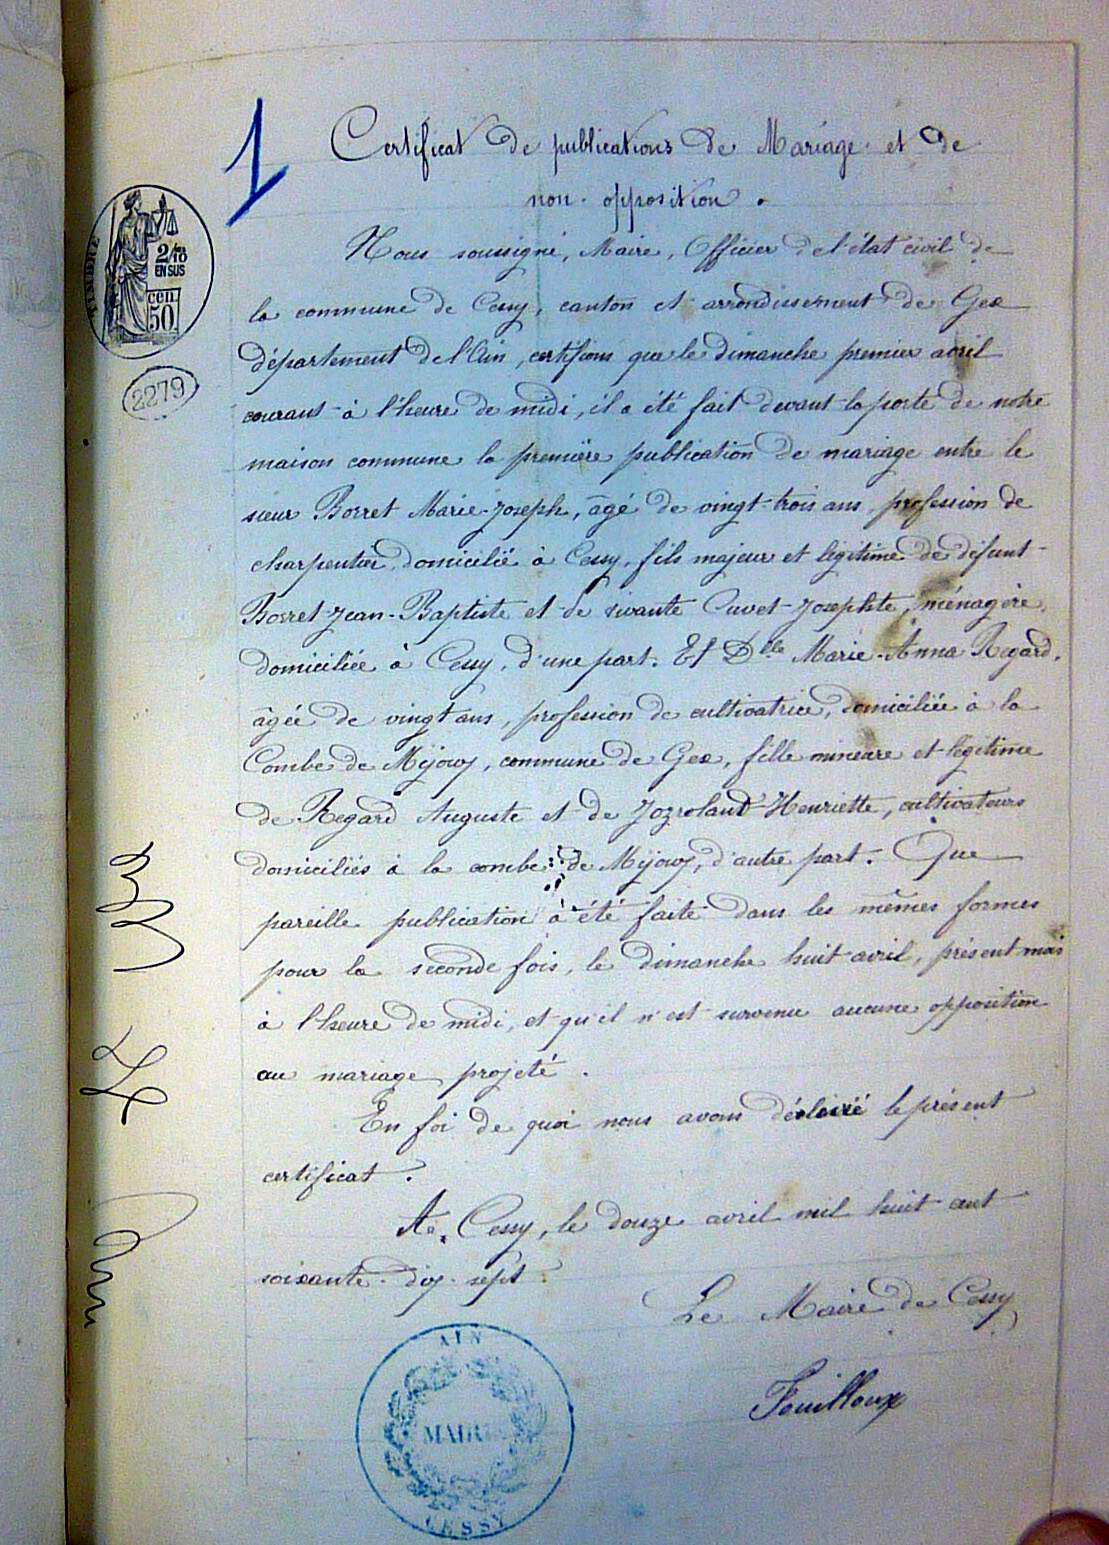 1
Certificat de publications de Mariage et de
non-opposition.
TIMBRE
2/10
EN SUS
cen.
50
2279
Nous soussigné, Maire, Officier de l'état civil de
la commune de Cessy, canton et arrondissement de Gex
département de l'Ain, certifions que le dimanche premier avril
courant à l'heure de midi, il a été fait devant la porte de notre
maison commune la première publication de mariage entre le
sieur Borret Marie-Joseph, âgé de vingt-trois ans, profession de
charpentier, domicilié à Cessy, fils majeur et légitime de défunt
Borret Jean-Baptiste et de vivante Cuvet Josephte, ménagère,
domiciliée à Cessy, d'une part. Et Dlle Marie-Anna Regard,
âgée de vingt ans, profession de cultivatrice, domiciliée à la
Combe de Mijoux, commune de Gex, fille mineure et légitime
de Regard Auguste et de Henriette, cultivateurs
domiciliés à la combe de Mijoux, d'autre part. Que
pareille publication à été faite dans les mêmes formes
pour la seconde fois, le dimanche huit avril, présent mois
à l'heure de midi, et qu'il n'est survenu aucune opposition
au mariage projeté.
En foi de quoi nous avons délivré le présent
certificat.
À Cessy, le douze avril mil huit cent
soixante-dix-sept.
Le Maire de Cessy
Fouilloux
AIN
MAIRIE
CESSY